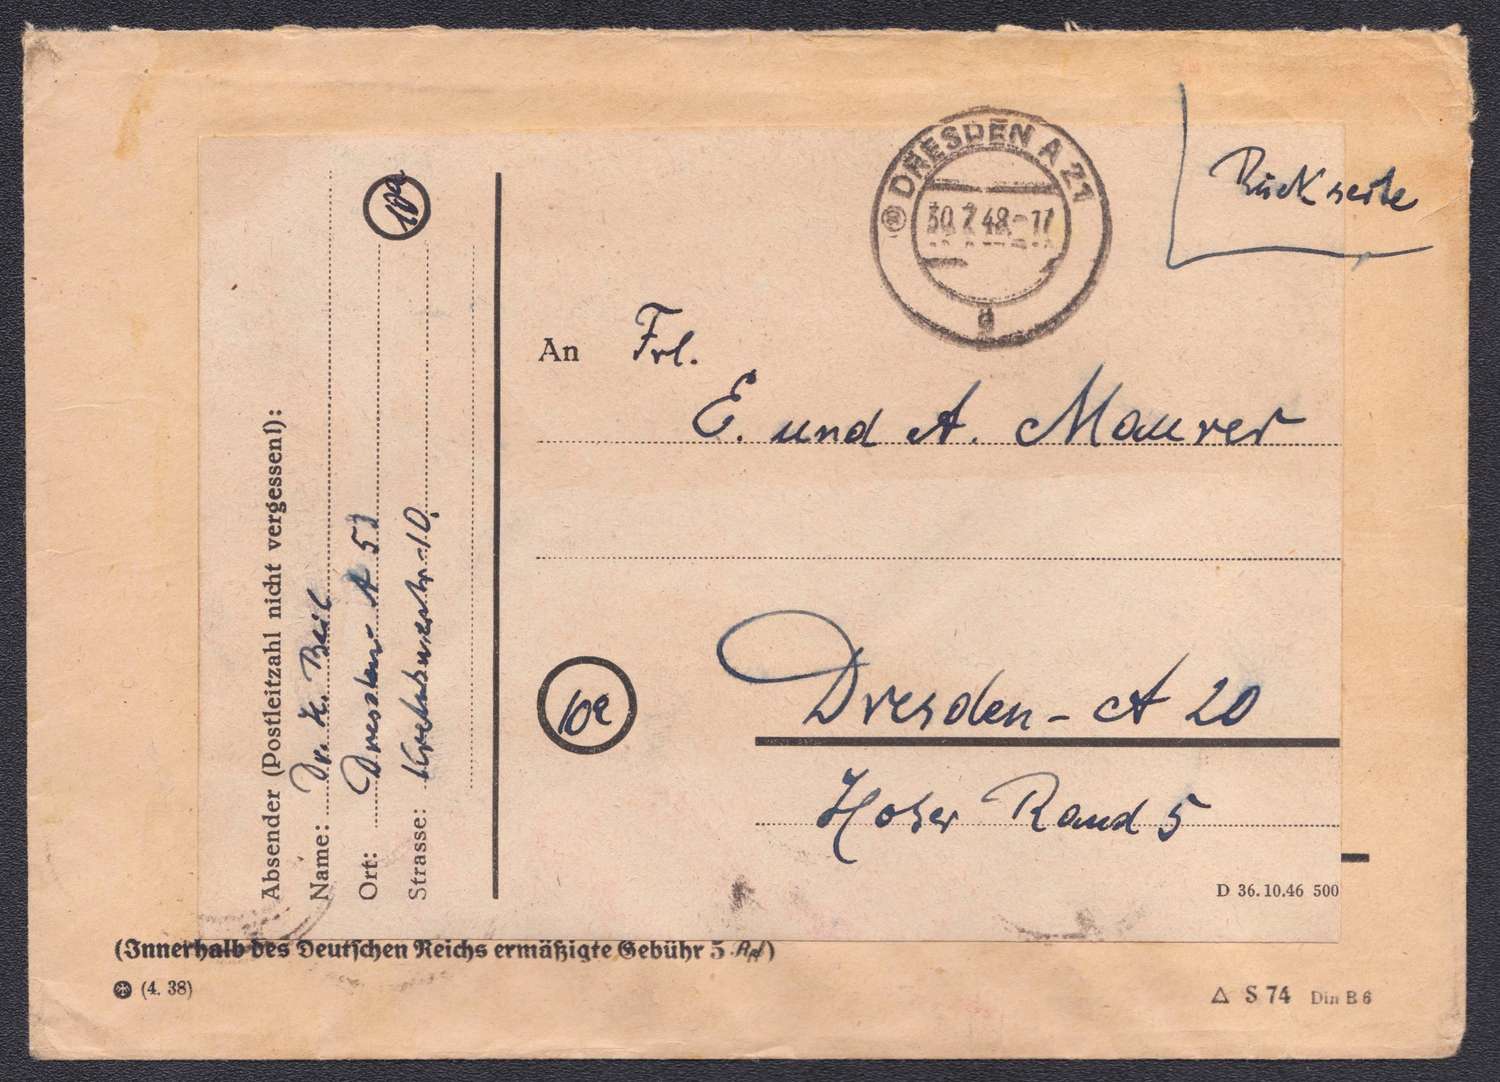 DRESDEN A 21
30.7.48.-17
a
Rückseite
An Frl.
E. und A. Maurer
10a
Dresden - A 20
Hoher Rand 5
D 36.10.46 500
10a
Absender (Postleitzahl nicht vergessen!):
Name: Dr. K. Beil
Ort: Dresden A 53
Strasse: 10.
(Innerhalb des Deutschen Reichs ermäßigte Gebühr 5 Rpf)
(4. 38)
△ S 74 Din B 6